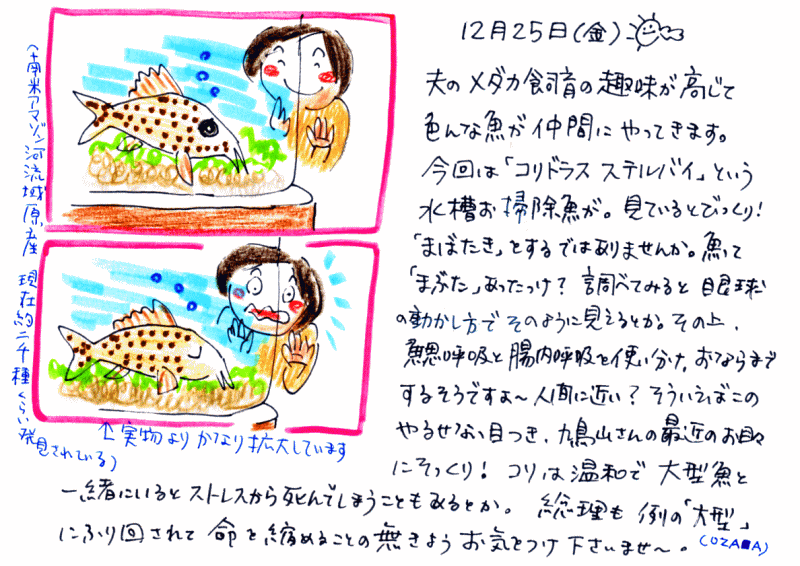 12月25日(金)
夫のメダカ飼育の趣味が高じて
色んな魚が仲間にやってきます。
今回は「コリドラス ステルバイ」という
水槽お掃除魚が。見ているとびっくり!
「まばたき」とするではありませんか。魚って
「まぶた」あったっけ?調べてみると眼球
の動かし方でそのように見えるとか。その上、
鰓呼吸と腸内呼吸を使い分け、おならまで
するそうですよ〜人間に近い?そういえばこの
やるせない目つき、鳩山さんの最近のお目々
にそっくり!コリは温和で大型魚と
一緒にいるとストレスから死んでしまうこともあるとか。総理も例の「大型」
にふり回されて命を縮めることの無きようお気をつけ下さいませ〜。
(OZA■A)
(南米アマゾン河流域原産 現在約二千種くらい発
見されている)
↑実物よりかなり拡大しています